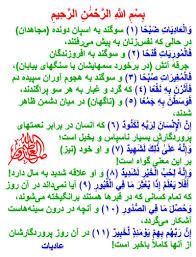 بِسْمِ اللَّهِ الرَّحْمَٰنِ الرَّحِيمِ
وَالْعَادِيَاتِ ضَبْحًا (۱) سوگند به اسبان دونده (مجاهدان)
در حالی که نفس‌زنان به پیش می‌رفتند،
فَالْمُورِيَاتِ قَدْحًا (۲) و سوگند به افروزندگان
جرقه آتش (در برخورد سمهایشان با سنگهای بیابان)،
فَالْمُغِيرَاتِ صُبْحًا (۳) و سوگند به هجوم آوران سپیده دم
فَأَثَرْنَ بِهِ نَقْعًا (۴) که گرد و غبار به هر سو پراکندند،
فَوَسَطْنَ بِهِ جَمْعًا (۵) و (ناگهان) در میان دشمن ظاهر
شدند،
إِنَّ الْإِنْسَانَ لِرَبِّهِ لَكَنُودٌ (۶) که انسان در برابر نعمتهای
پروردگارش بسیار ناسپاس و بخیل است؛
وَإِنَّهُ عَلَىٰ ذَٰلِكَ لَشَهِيدٌ (۷) و او خود (نیز)
بر این معنی گواه است!
وَإِنَّهُ لِحُبِّ الْخَيْرِ لَشَدِيدٌ (۸) و او علاقه شدید به مال دارد!
أَفَلَا يَعْلَمُ إِذَا بُعْثِرَ مَا فِي الْقُبُورِ (۹) آیا نمی‌داند در آن روز
که تمام کسانی که در قبرها هستند برانگیخته می‌شوند،
وَحُصِّلَ مَا فِي الصُّدُورِ (۱۰) و آنچه در درون سینه‌هاست
آشکار می‌گردد،
إِنَّ رَبَّهُمْ بِهِمْ يَوْمَئِذٍ لَخَبِيرٌ (۱۱) در آن روز پروردگارشان
از آنها کاملاً باخبر است!
عادیات